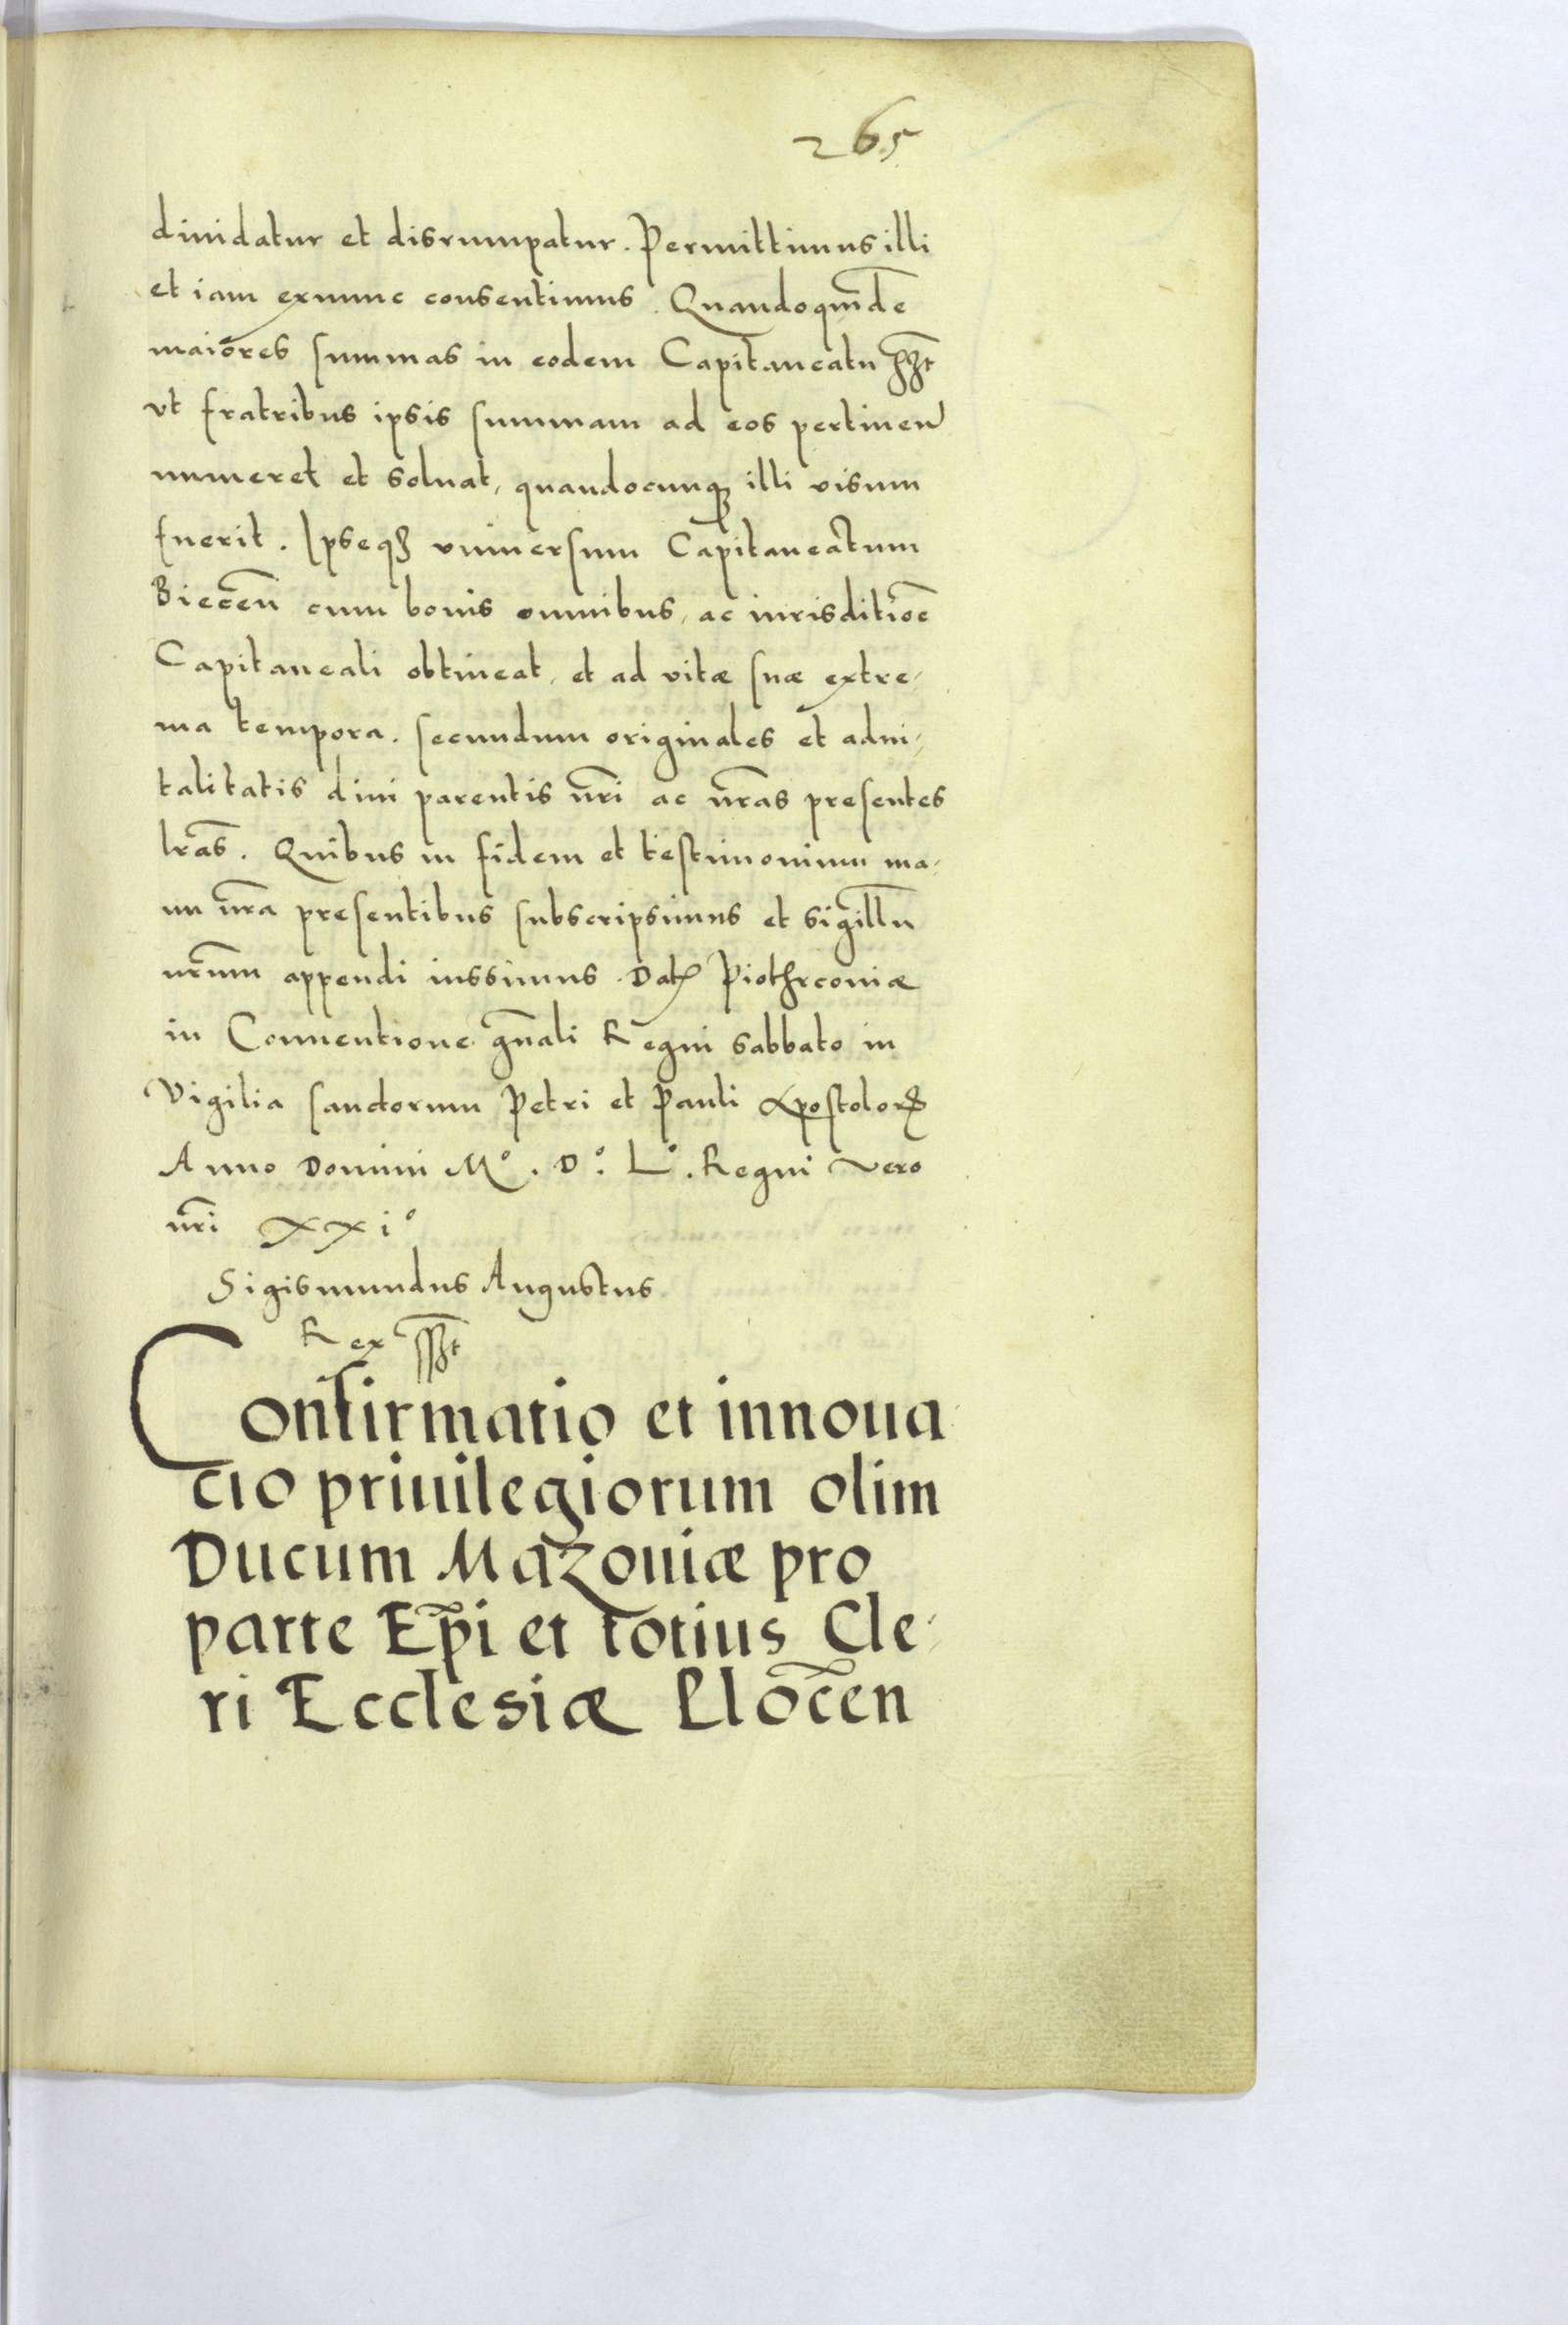 265
diuidatur et disrumpatur. Permittimus illi
et iam exnunc consentimus. Quandoquide
maiores summas in eodem Capitaneatu hȝt
vt fratribus ipsis summam ad eos pertinen
numeret et soluat, quandocunqȝ illi visum
fuerit. Ipseqȝ vniuersum Capitaneatum
Biecen̄ cum bonis omnibus, ac iurisditioē
Capitaneali obtineat, et ad vitæ suæ extre-
ma tempora. secundum originales et adui-
talitatis diui parentis nr̄i ac nr̄as presentes
lr̄as. Quibus in fidem et testimonium ma-
nu nr̄a presentibus subscripsimus et sigillū
nr̄um appendi iussimus. Dat Piothrconiæ
in Conuentione gn̄ali Regni sabbato in
Vigilia sanctorum Petri et Pauli Apostolorꝫ
Anno Domini Mº. Dº. Lº. Regni vero
nr̄i xxiº
Sigismundus Augustus
Rex ssȝt
Confirmatio et innoua-
cio priuilegiorum olim
Ducum Mazouiæ pro
parte Ep̄i et totius Cle-
ri Ecclesiæ Plocen̄